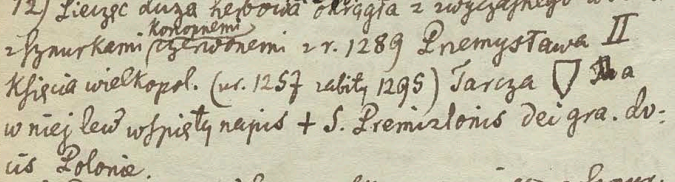 12) Pieczęć duża herbowa okrągła z zwyczajnego
konopnemi
z sznurkami czerwonemi z r. 1289 Przemysława II
Księcia wielkopol. (ur. 1257 zabity 1295) Tarcza a
w niej lew wspięty napis + S. Premizlonis dei gra. du-
cis Polonie.